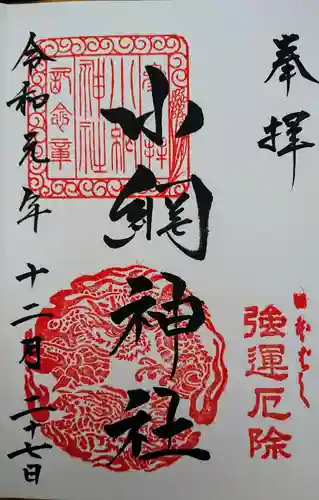 奉拝
強運厄除
小網神社
令和元年十二月二十七日